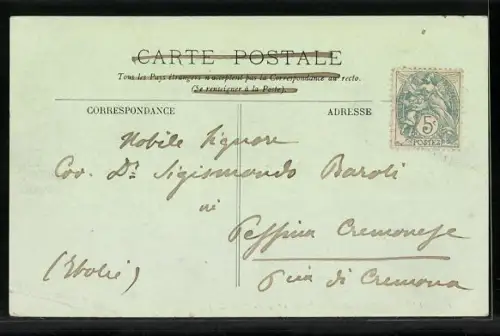 CARTE POSTALE
Tous les Pays étrangers n'acceptent pas la Correspondance au recto.
(Se renseigner à la Poste).
CORRESPONDANCE
ADRESSE
5c
POSTES
Nobile Signore
Cav. Dr. Sigismondo Baroli
Pessina Cremonese
di Cremona